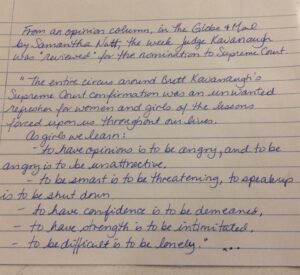 From an opinion column, in the Globe & Mail
by Samantha Nutt, the week Judge Kavanaugh
was "reviewed" for the nomination to Supreme Court
"The entire circus around Brett Kavanaugh's
Supreme Court confirmation was an unwanted
refresher for women and girls of the lessons
forced upon us throughout our lives.
As girls we learn:
- to have opinions is to be angry, and to be
angry is to be unattractive.
- to be smart is to be threatening, to speak up
is to be shut down
- to have confidence is to be demeaned,
- to have strength is to be intimitated,
- to be difficult is to be lonely." ....